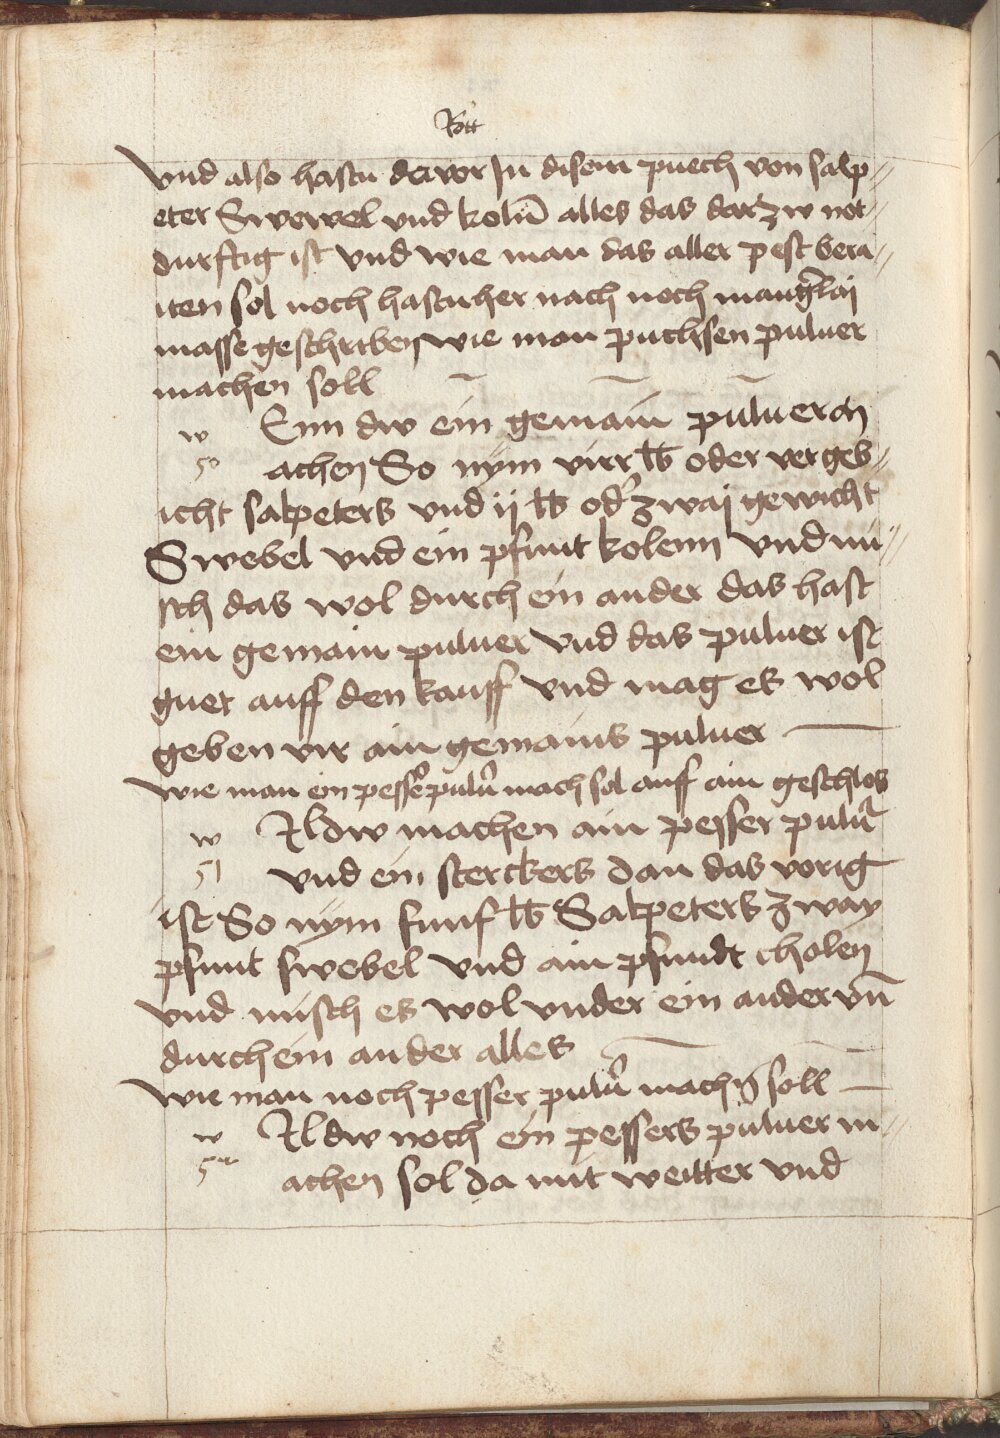 Vnd also hastu devor In disem puech von salp„
eter Swewel vnd kolñ alles das darzw not„
durftig ist vnd wie man das aller pest bera„
iten sol noch hastu her nach noch mangˀlai
masse geschriben wie man puchsen puluer
machen soll
w Enn dw ein gemain puluer m
50 achen So nÿm virr ℔ oder vir geb„
icht salpeters vnd ij ℔ odˀ zwaj gewicht
Swebel vnd ein pfunt kolenn vnd mi„
sch das wol durch ein ander das hast
ein gemain puluer vnd das puluer ist
guet auff den kauff vnd mag es wol
geben vir ain gemains puluer
wie man ein pessˀ puluˀ mach sol auff ain geschlos
w Ildw machen ain pesser puluˀ
51 vnd ein sterckers dan das vorig
ist So nÿm funf ℔ Salpeters zway
pfunt swebel vnd ain pfundt cholen
vnd misch es wol vnder ein ander vñ
durch ein ander alles
wie man noch pesser puluˀ machñ soll
w Ildw noch ein pessers puluer m„
52 achen sol da mit weitter vnd